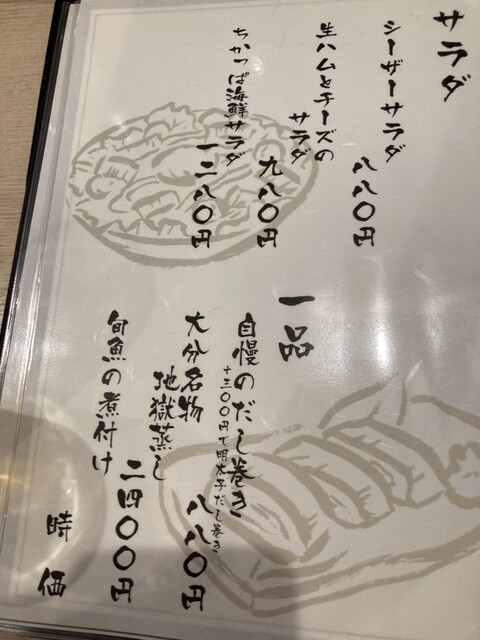 サラダ
シーザーサラダ
八八〇円
生ハムとチーズの
サラダ
九八〇円
ちかっぱ海鮮サラダ
一二八〇円
一品
自慢のだし巻き
+三〇〇円で明太子だし巻き
八八〇円
大分名物
地獄蒸し
二四〇〇円
旬魚の煮付け
時価